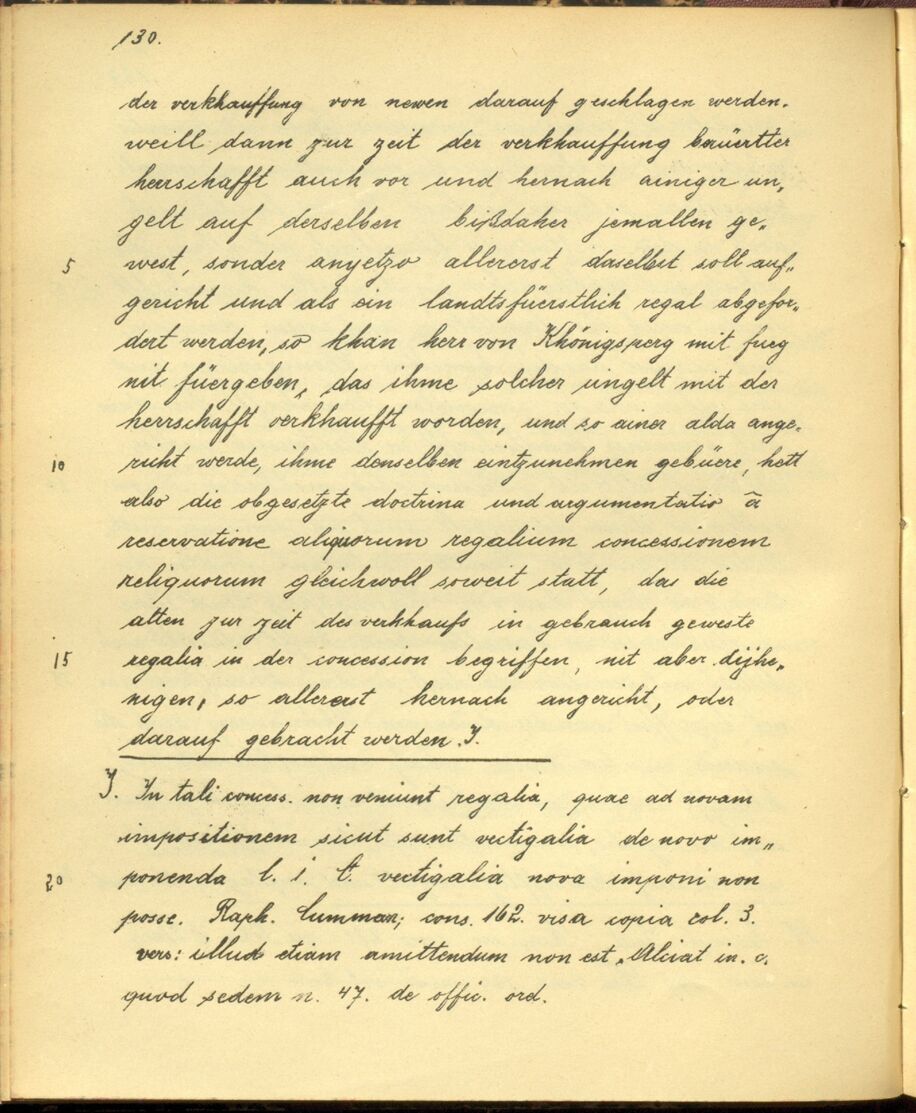 130.
der verkhauffung von newen darauf geschlagen werden.
weill dann zur zeit der verkhauffung berüertter
herrschafft auch vor und hernach ainiger un„
gelt auf derselben bißdaher jemallen ge„
5 west, sonder anyetzo allererst daselbst soll auf„
gericht und als ein landtsfüerstlich regal abgefor„
dert werden, so khan herr von Khönigsperg mit fueg
nit füergeben, das ihme solcher ungelt mit der
herrschafft verkhaufft worden, und so ainer alda ange„
10 richt werde, ihme denselben eintzunehmen gebüere, hett
also die obgesetzte doctrina und argumentatio ã
reservatione aliquorum regalium concessionem
reliquorum gleichwoll soweit statt, das die
alten zur zeit des verkhaufs in gebrauch geweste
15 regalia in der concession begriffen, nit aber dijhe„
nigen, so allererst hernach angericht, oder
darauf gebracht werden. J.
J. In tali concess. non veniunt regalia, quae ad novam
impositionem sicut sunt vectigalia de novo im„
20 ponenda l. i. C. vectigalia nova imponi non
posse. Raph. Cumman; cons. 162. visa copia col. 3.
vers: illud etiam amittendum non est, Alciat in. c.
quod sedem n. 47. de offic. ord.